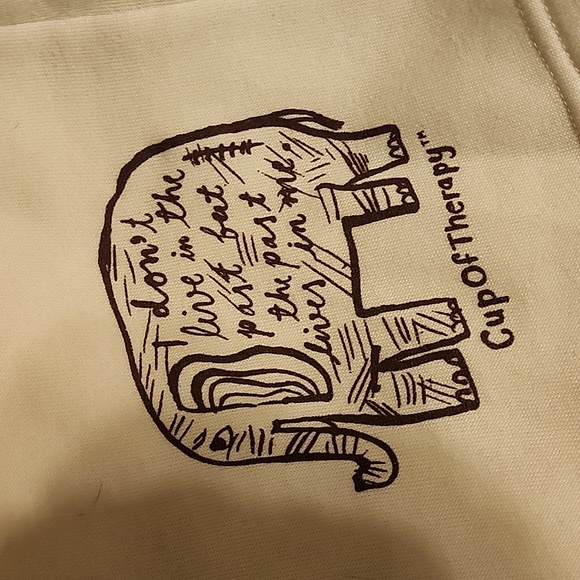 I don't
live in the
past but
past past
the past
lives in me.
CupOfTherapy™